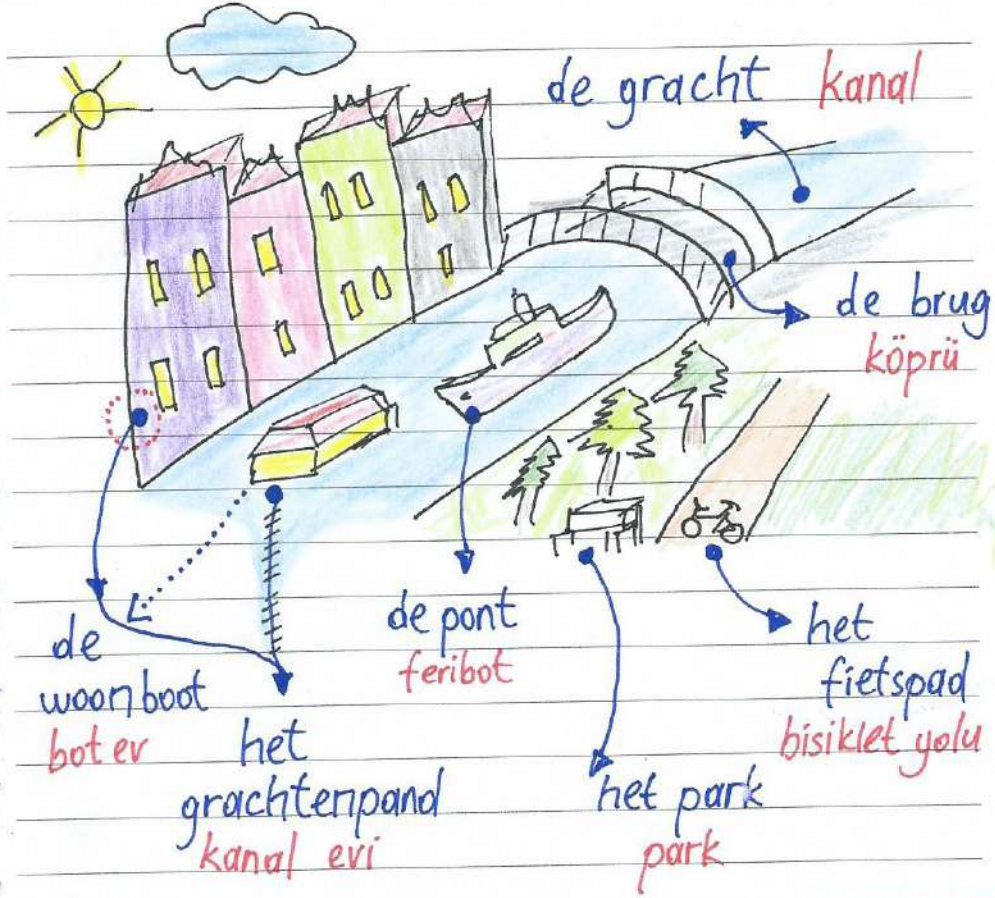 de gracht kanal
de brug
köprü
de
woonboot
bot ev
het
grachtenpand
kanal evi
de pont
feribot
het park
park
het
fietspad
bisiklet yolu